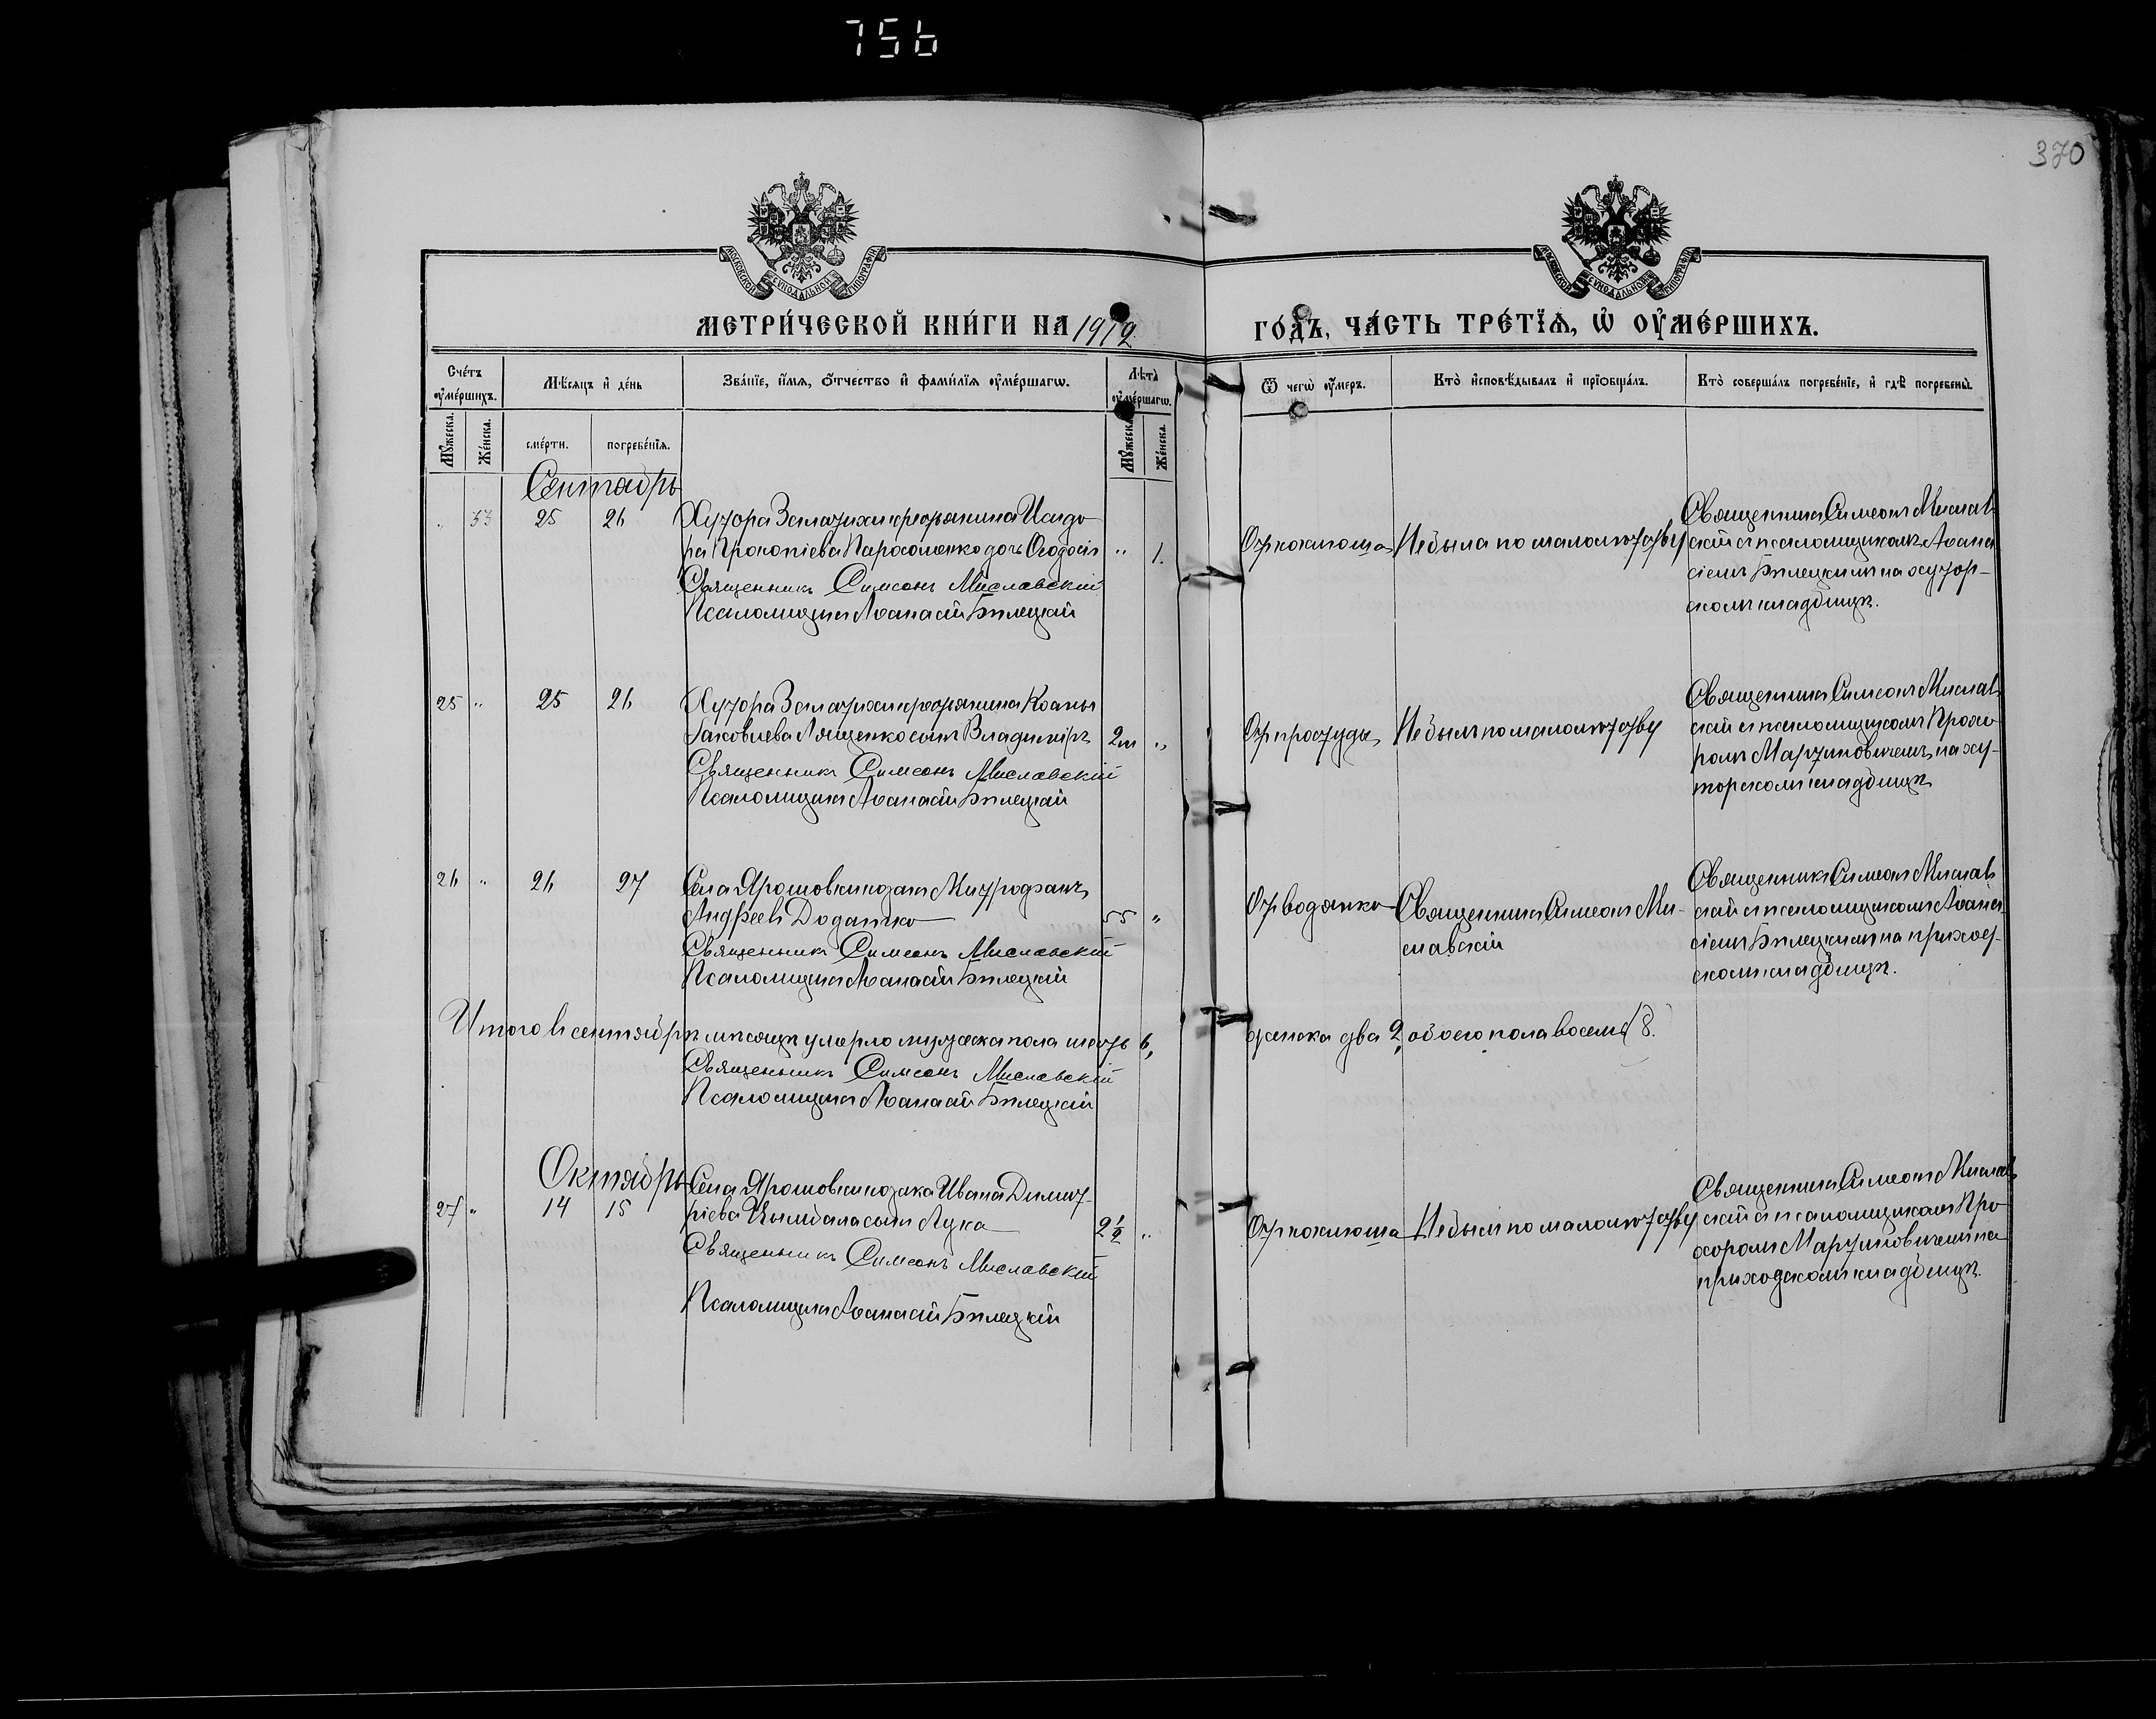 756
370
МОСКОВСКОЙ СѴНОДАЛЬНОЙ ТИПОГРАФІИ
МОСКОВСКОЙ СѴНОДАЛЬНОЙ ТИПОГРАФІИ
МЕТРИ́ЧЕСКОЙ КНИ́ГИ НА 1912
ГО́ДЪ, ЧА́СТЬ ТРЕ́ТЇѦ, Ѡ҆ ОУ҆МЕ́РШИХЪ.
Сче́тъ оу҆ме́ршихъ.
Мꙋ́жеска.
Же́нска.
Мѣ́сѧцъ и҆ де́нь
сме́рти.
погребе́нїѧ.
Зва́нїе, и҆́мѧ, ѻ҆́тчество и҆ фами́лїѧ оу҆ме́ршагѡ.
Лѣта̀ оу҆ме́ршагѡ.
Мꙋ́жеска.
Же́нска.
Ѿ чегѡ̀ оу҆́меръ.
Кто̀ и҆сповѣ́дывалъ и҆ прїѡбща́лъ.
Кто̀ соверша́лъ погребе́нїе, и҆ гдѣ̀ погребены̀.
Сентябрь
„ 53 25 26 Хутора Золатихи крестьянина Исидо-
ра Прокопіева Пархоменко дочь Ѳеодосія „ 1.
Священникъ Симеонъ Миславскій
Псаломщикъ Аѳанасій Бѣлецкій
Отъ коклюша
Не была по малолѣтству
Священникъ Симеонъ Мислав-
скій съ псаломщикомъ Аѳана-
сіемъ Бѣлецкимъ на хутор-
скомъ кладбищѣ.
25 „ 25 26 Хутора Золатихи крестьянина
Яковлева Лященко сынъ Владиміръ 2м „
Священникъ Симеонъ Миславскій
Псаломщикъ Аѳанасій Бѣлецкій
Отъ простуды
Не былъ по малолѣтству
Священникъ Симеонъ Мислав-
скій съ псаломщикомъ Прохо-
ромъ Мартиновичемъ на ху-
торскомъ кладбищѣ
26 „ 26 27 Села Ярошовки козакъ Митрофанъ
Андреевъ Додатко 55 „
Священникъ Симеонъ Миславскій
Псаломщикъ Аѳанасій Бѣлецкій
Отъ водянки
Священникъ Симеонъ Ми-
славскій
Священникъ Симеонъ Мислав-
скій съ псаломщикомъ Аѳана-
сіемъ Бѣлецкимъ на приход-
скомъ кладбищѣ.
Итого въ сентябрѣ мѣсяцѣ умерло мужеска пола шесть 6,
женска два 2, обоего пола восемь 8.
Священникъ Симеонъ Миславскій
Псаломщикъ Аѳанасій Бѣлецкій
Октябрь
27 „ 14 15 Села Ярошовки козака Ивана Димит-
ріева Цымбала сынъ Лука 2½ „
Священникъ Симеонъ Миславскій
Псаломщикъ Аѳанасій Бѣлецкій
Отъ коклюша
Не былъ по малолѣтству
Священникъ Симеонъ Мислав-
скій съ псаломщикомъ Про-
хоромъ Мартиновичемъ на
приходскомъ кладбищѣ.